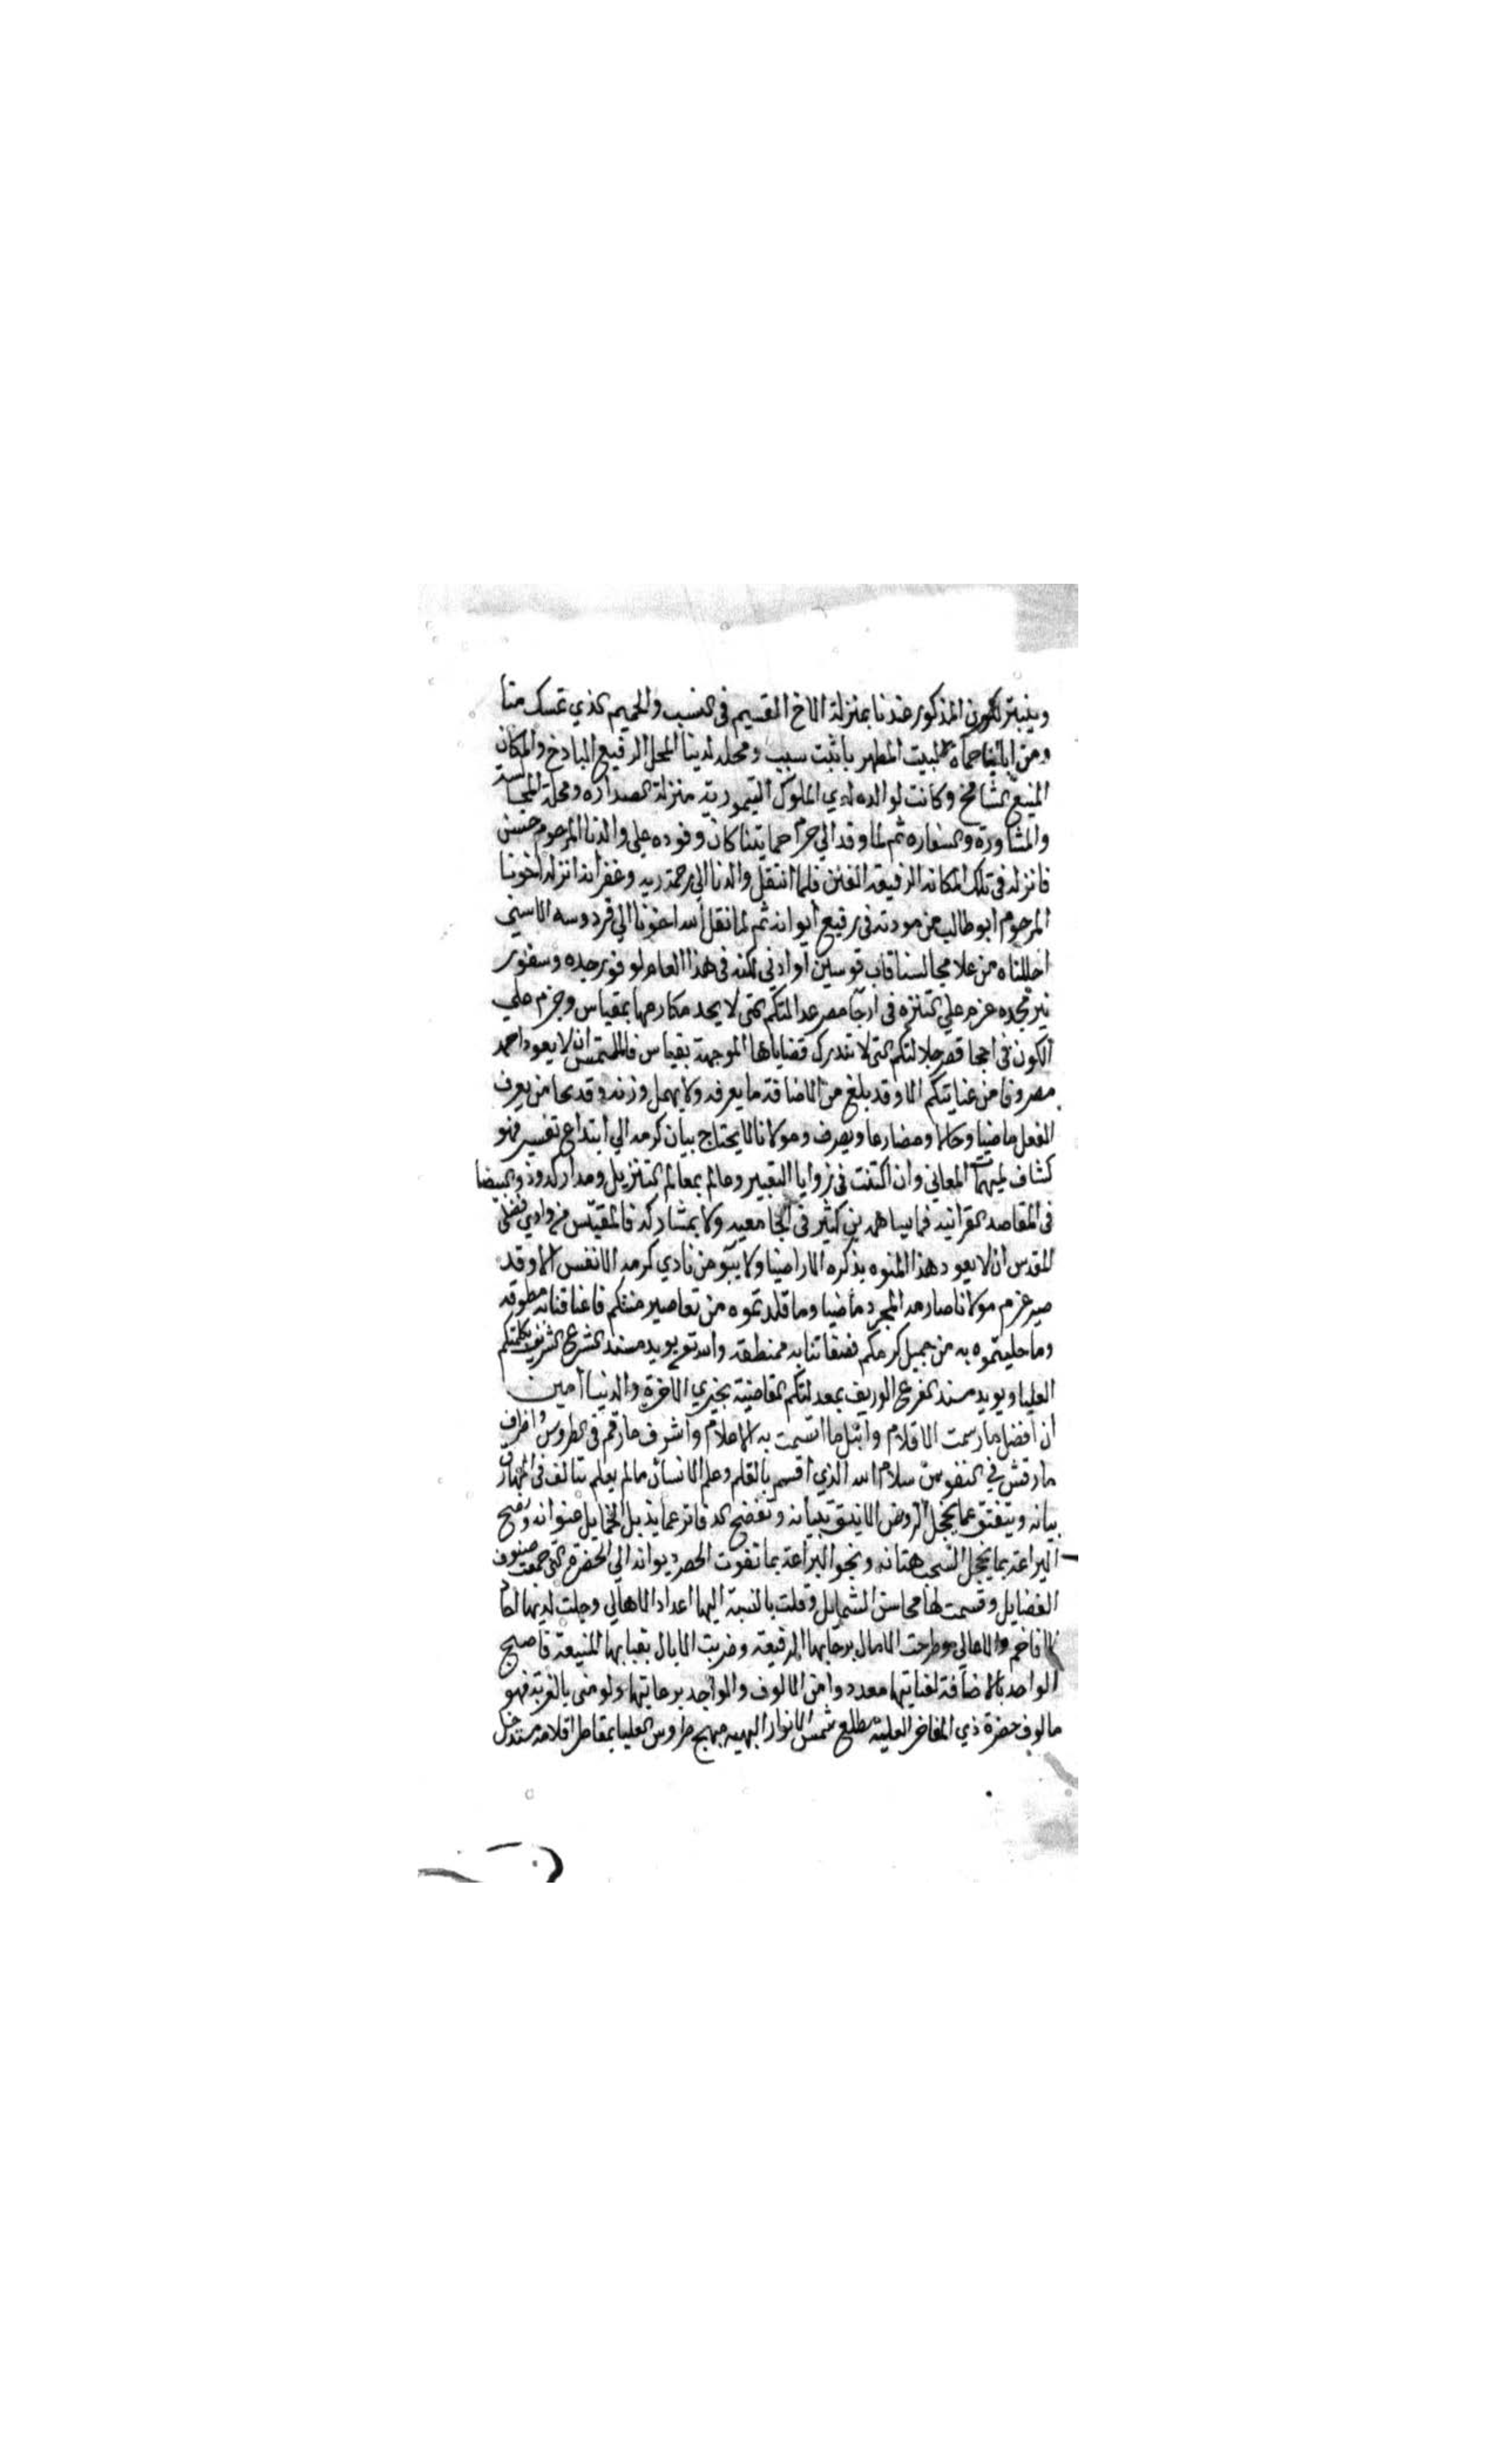 المذكور عندنا بمنزلة الاخ القسيم في النسب والحميم الذي تمسك منا
ومن ابائنا حماة البيت المطهر باثبت سبب ومحله لدينا المحل الرفيع الباذخ والمكان
المنيع الشامخ وكانت لوالده لدي الملوك التيمورية منزلة الصداره ومحلة المجالسة
والمشاورة والسفاره ثم لما وفد الي حرم حمايتنا كان وفوده علي والدنا المرحوم حسن
فانزله في تلك المكانه الرفيعة القنن فلما انتقل والدنا الي رحمة ربه وغفرانه انزله اخونا
المرحوم ابو طالب من مودته في رفيع ايوانه ثم لما نقل الله اخونا الي فردوسه الاسني
احللناه من علا مجالسنا قاب قوسين او ادني لكنه في هذا العام لوفور جده وسفور
نير مجده عزم علي التنزه في ارجآ مصر عدالتكم التي لا يحد مكارمها بمقياس وجزم علي
الكون في قصر جلالتكم التي لا تدرك قضاياها الموجهة بقياس فالملتمس ان لا يعود احمد
مصروفا من عنايتكم الا وقد بلغ من الاضافة ما يعرفه ولا يهمل وزنه من يعرف
الفعل ماضيا وحالا ومضارعا ويصرف ومولانا لا يحتاج بيان كرمه الي ابتداع تفسير فهو
كشاف لمبهمات المعاني وان اكتنت في زوايا التعبير وعالم بمعالم التنزيل ومدارك
في المقاصد القرانيه فما يساهمه بن كثير في ولا يشاركه فالمقتبس من وادي فضلي
المقدس ان لا يعود هذا المنوه بذكره الا راضيا ولا من نادي كرمه الانفس الا وقد
صير عزم مولانا صارمه المجرد ماضيا وما قلدتموه من تقاصير مننكم فاعناقنا به مطوقه
وما حليتموه به من جميل كرمكم به ممنطقه والله تعالي يويد مسند الشرع الشريف بكلمتكم
العليا ويويد مسند الفرع الوريف بمعدلتكم القاضية بخيري الاخرة والدنيا امين
ان افضل ما رسمت الاقلام وانبل ما اتسمت به الاعلام واشرف ما رقم في الطروس واظرف
ما رقش في النفوس سلام الله الذي اقسم بالقلم وعلم الانسان ما لم يعلم يتالف في المهارق
بيانه ويتفتق عما يخجل الروض الانيق تبيانه وتفضح الدفاتر عما يذبل الخمايل عنوانه
اليراعة بما يخجل السحب هتانه البراعة بما تفوت الحصر ديوانه الي الحضرة التي جمعت صنوف
الفضايل وقسمت لها محاسن الشمايل وقلت بالنسبة اليها اعداد الاهالي وجلت لديها
الافاخم والاعالي وطرحت الامال برحابها الرفيعة وضربت بقبابها المنيعة فاصبح
الواحد بالاضافة لغنايتها معدودا من الالوف والواجد برعايتها ولو مني بالغربة فهو
مالوف حضرة ذي المفاخر العلية مطلع شمس الانوار البهيه مبهج طروس العليا بمقاطر اقلامه